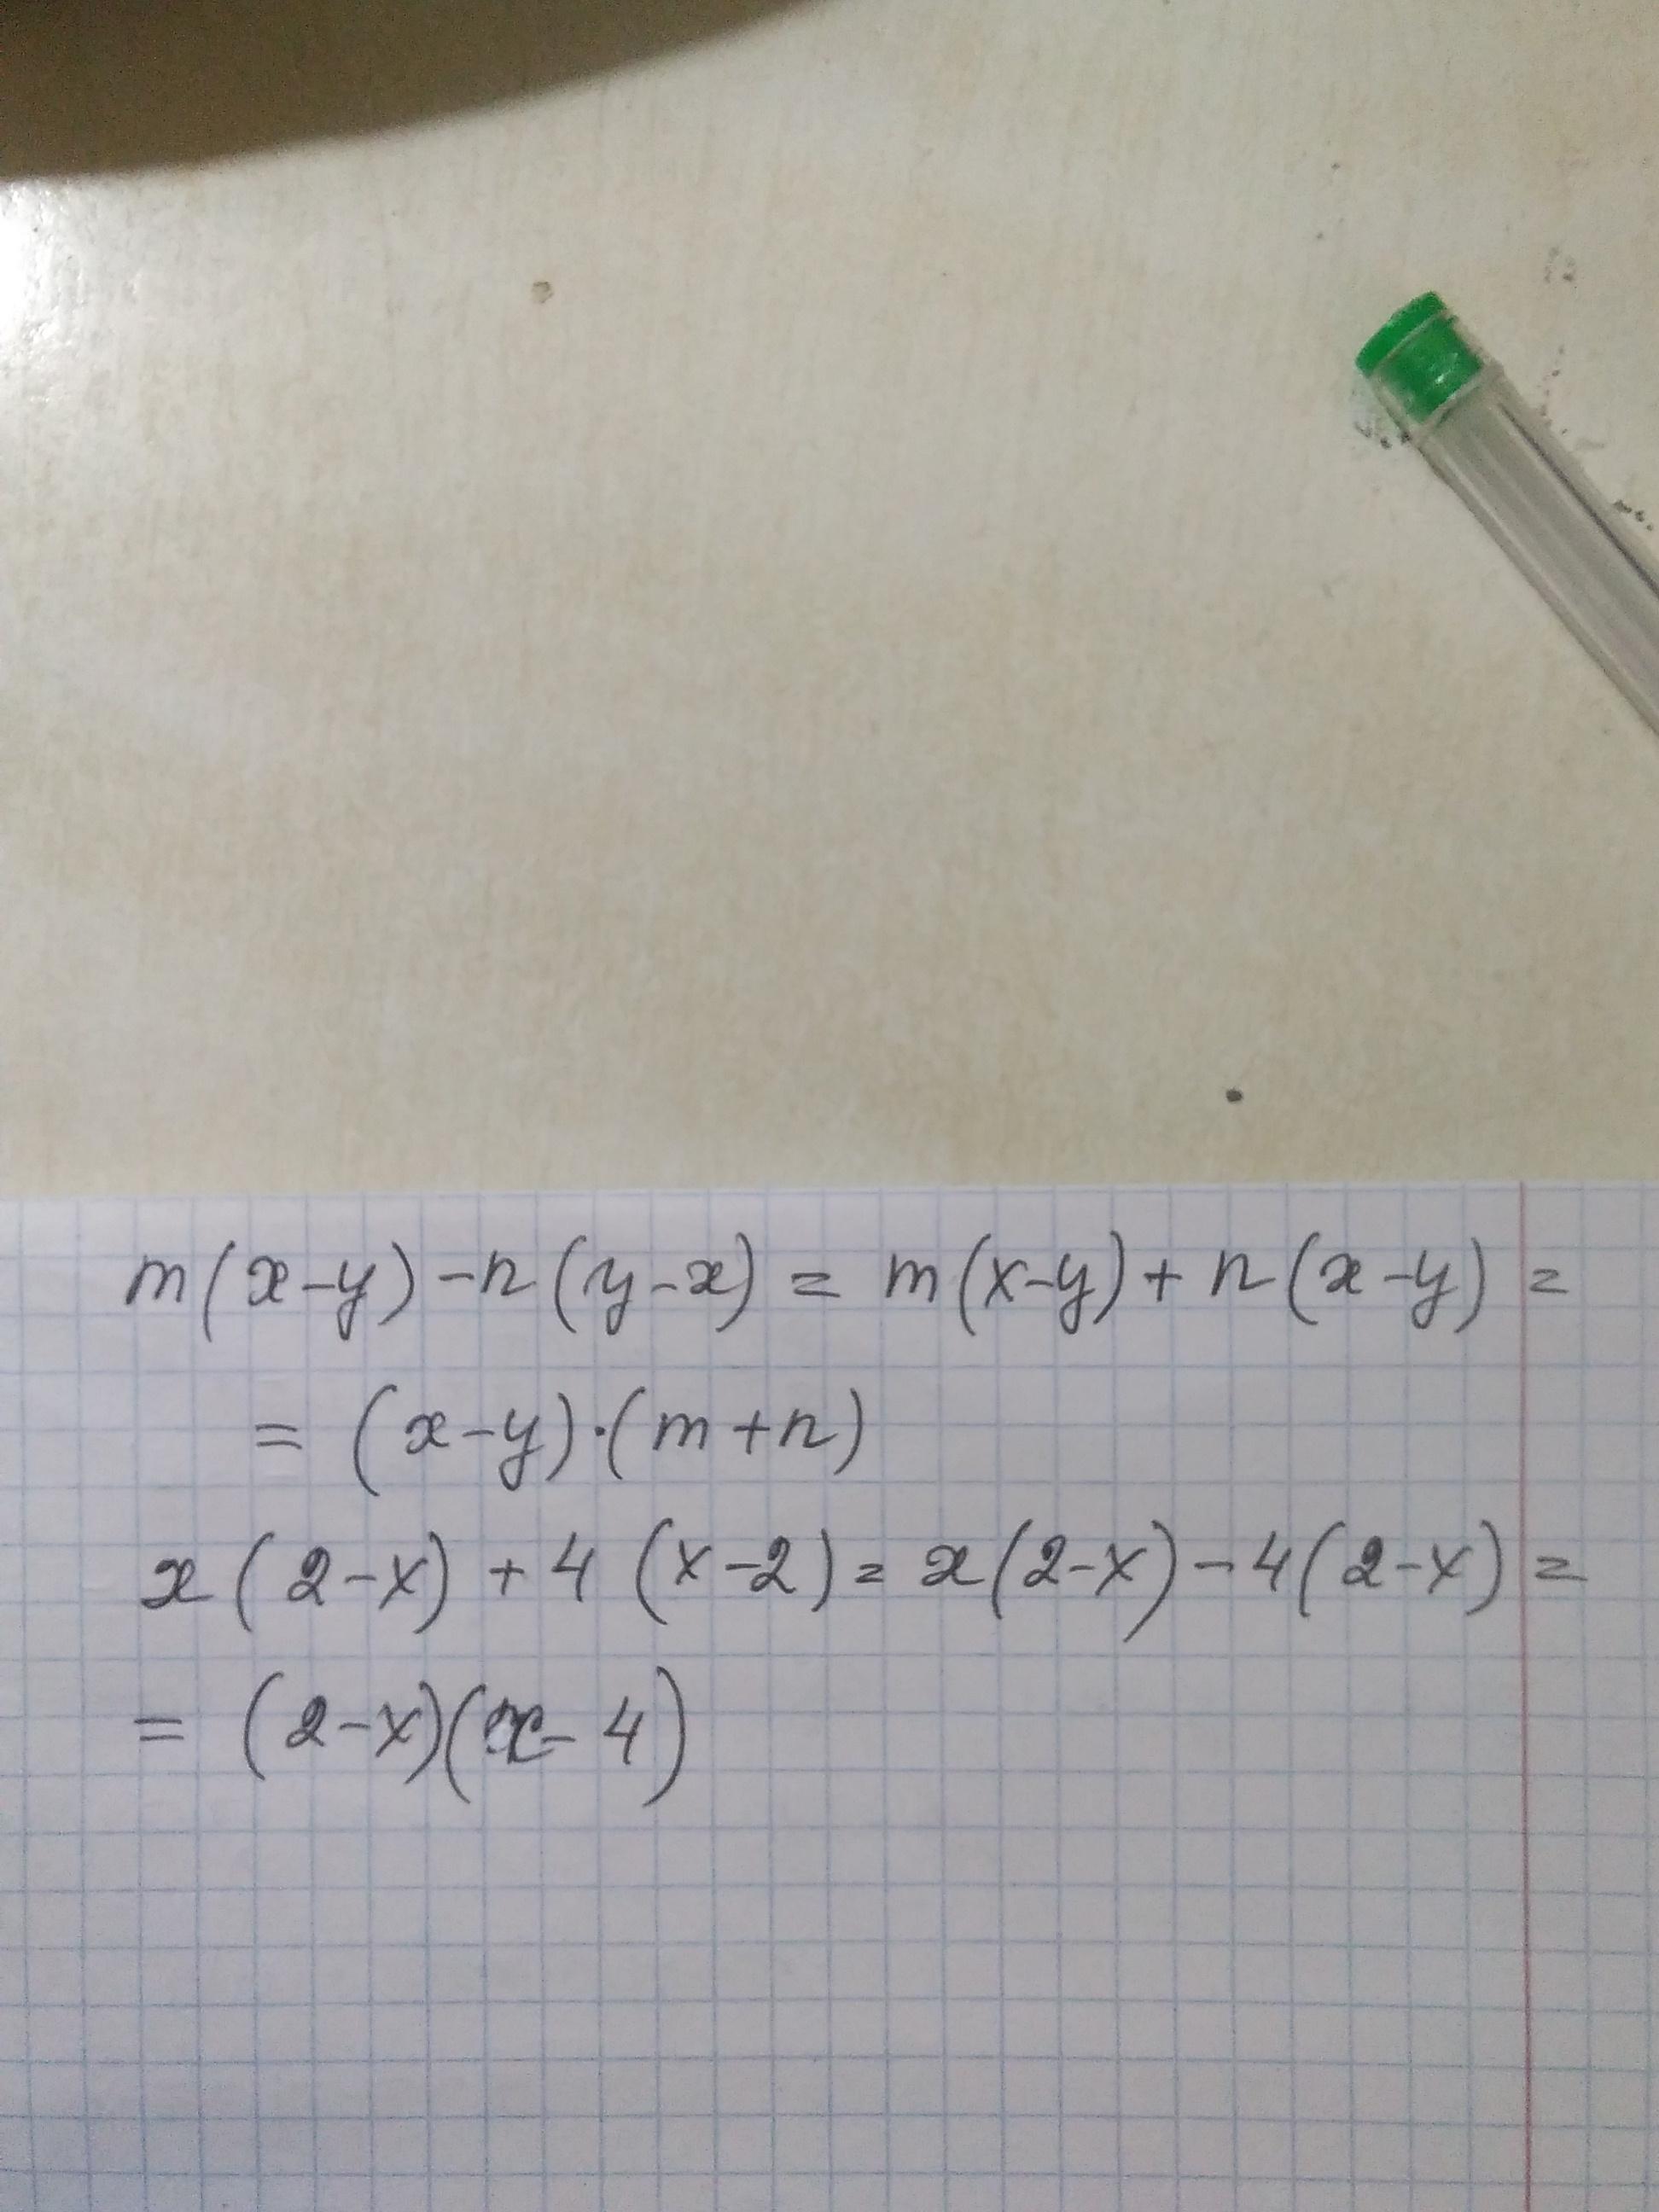 m(x-y)-n(y-x)=m(x-y)+n(x-y)=
=(x-y)·(m+n)
x(2-x)+4(x-2)=x(2-x)-4(2-x)=
=(2-x)(x-4)